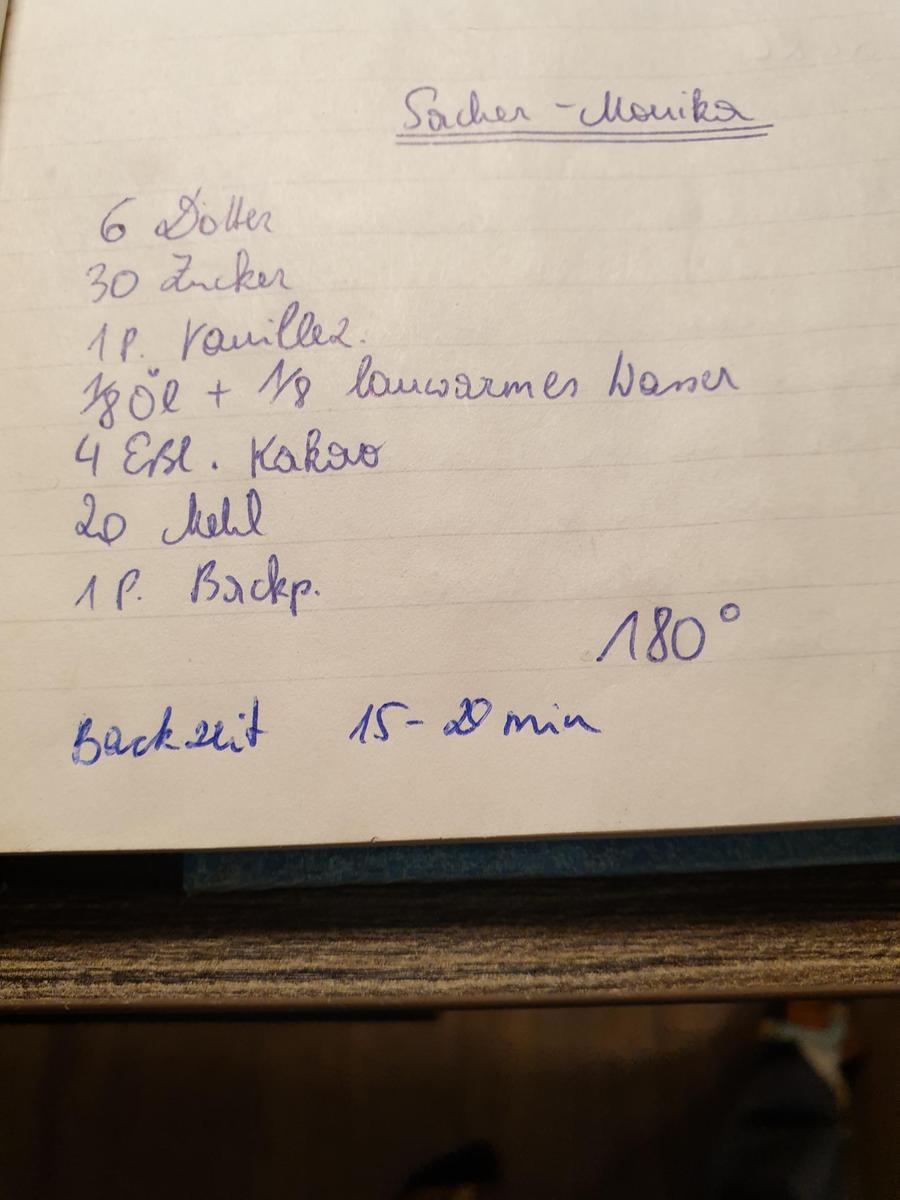 Sacher - Monika
6 Dotter
30 Zucker
1 P. Vanillez.
1/8 Öl + 1/8 lauwarmes Wasser
4 Eßl. Kakao
20 Mehl
1 P. Backp.
180°
Backzeit 15-20 min